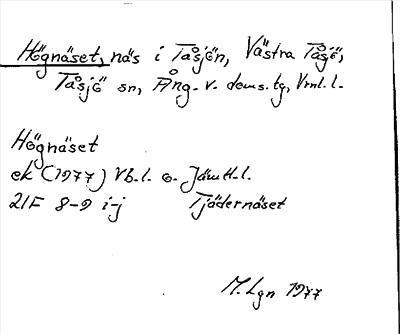 Högnäset, näs i Tåsjön, Västra Tåsjö,
Tåsjö sn, Ång. v. doms.tg, Vrnl. l.
Högnäset
ek (1977) Vb. l. o. Jämtl. l.
21F 8-9 i-j Tjädernäset
M. Lgn 1977